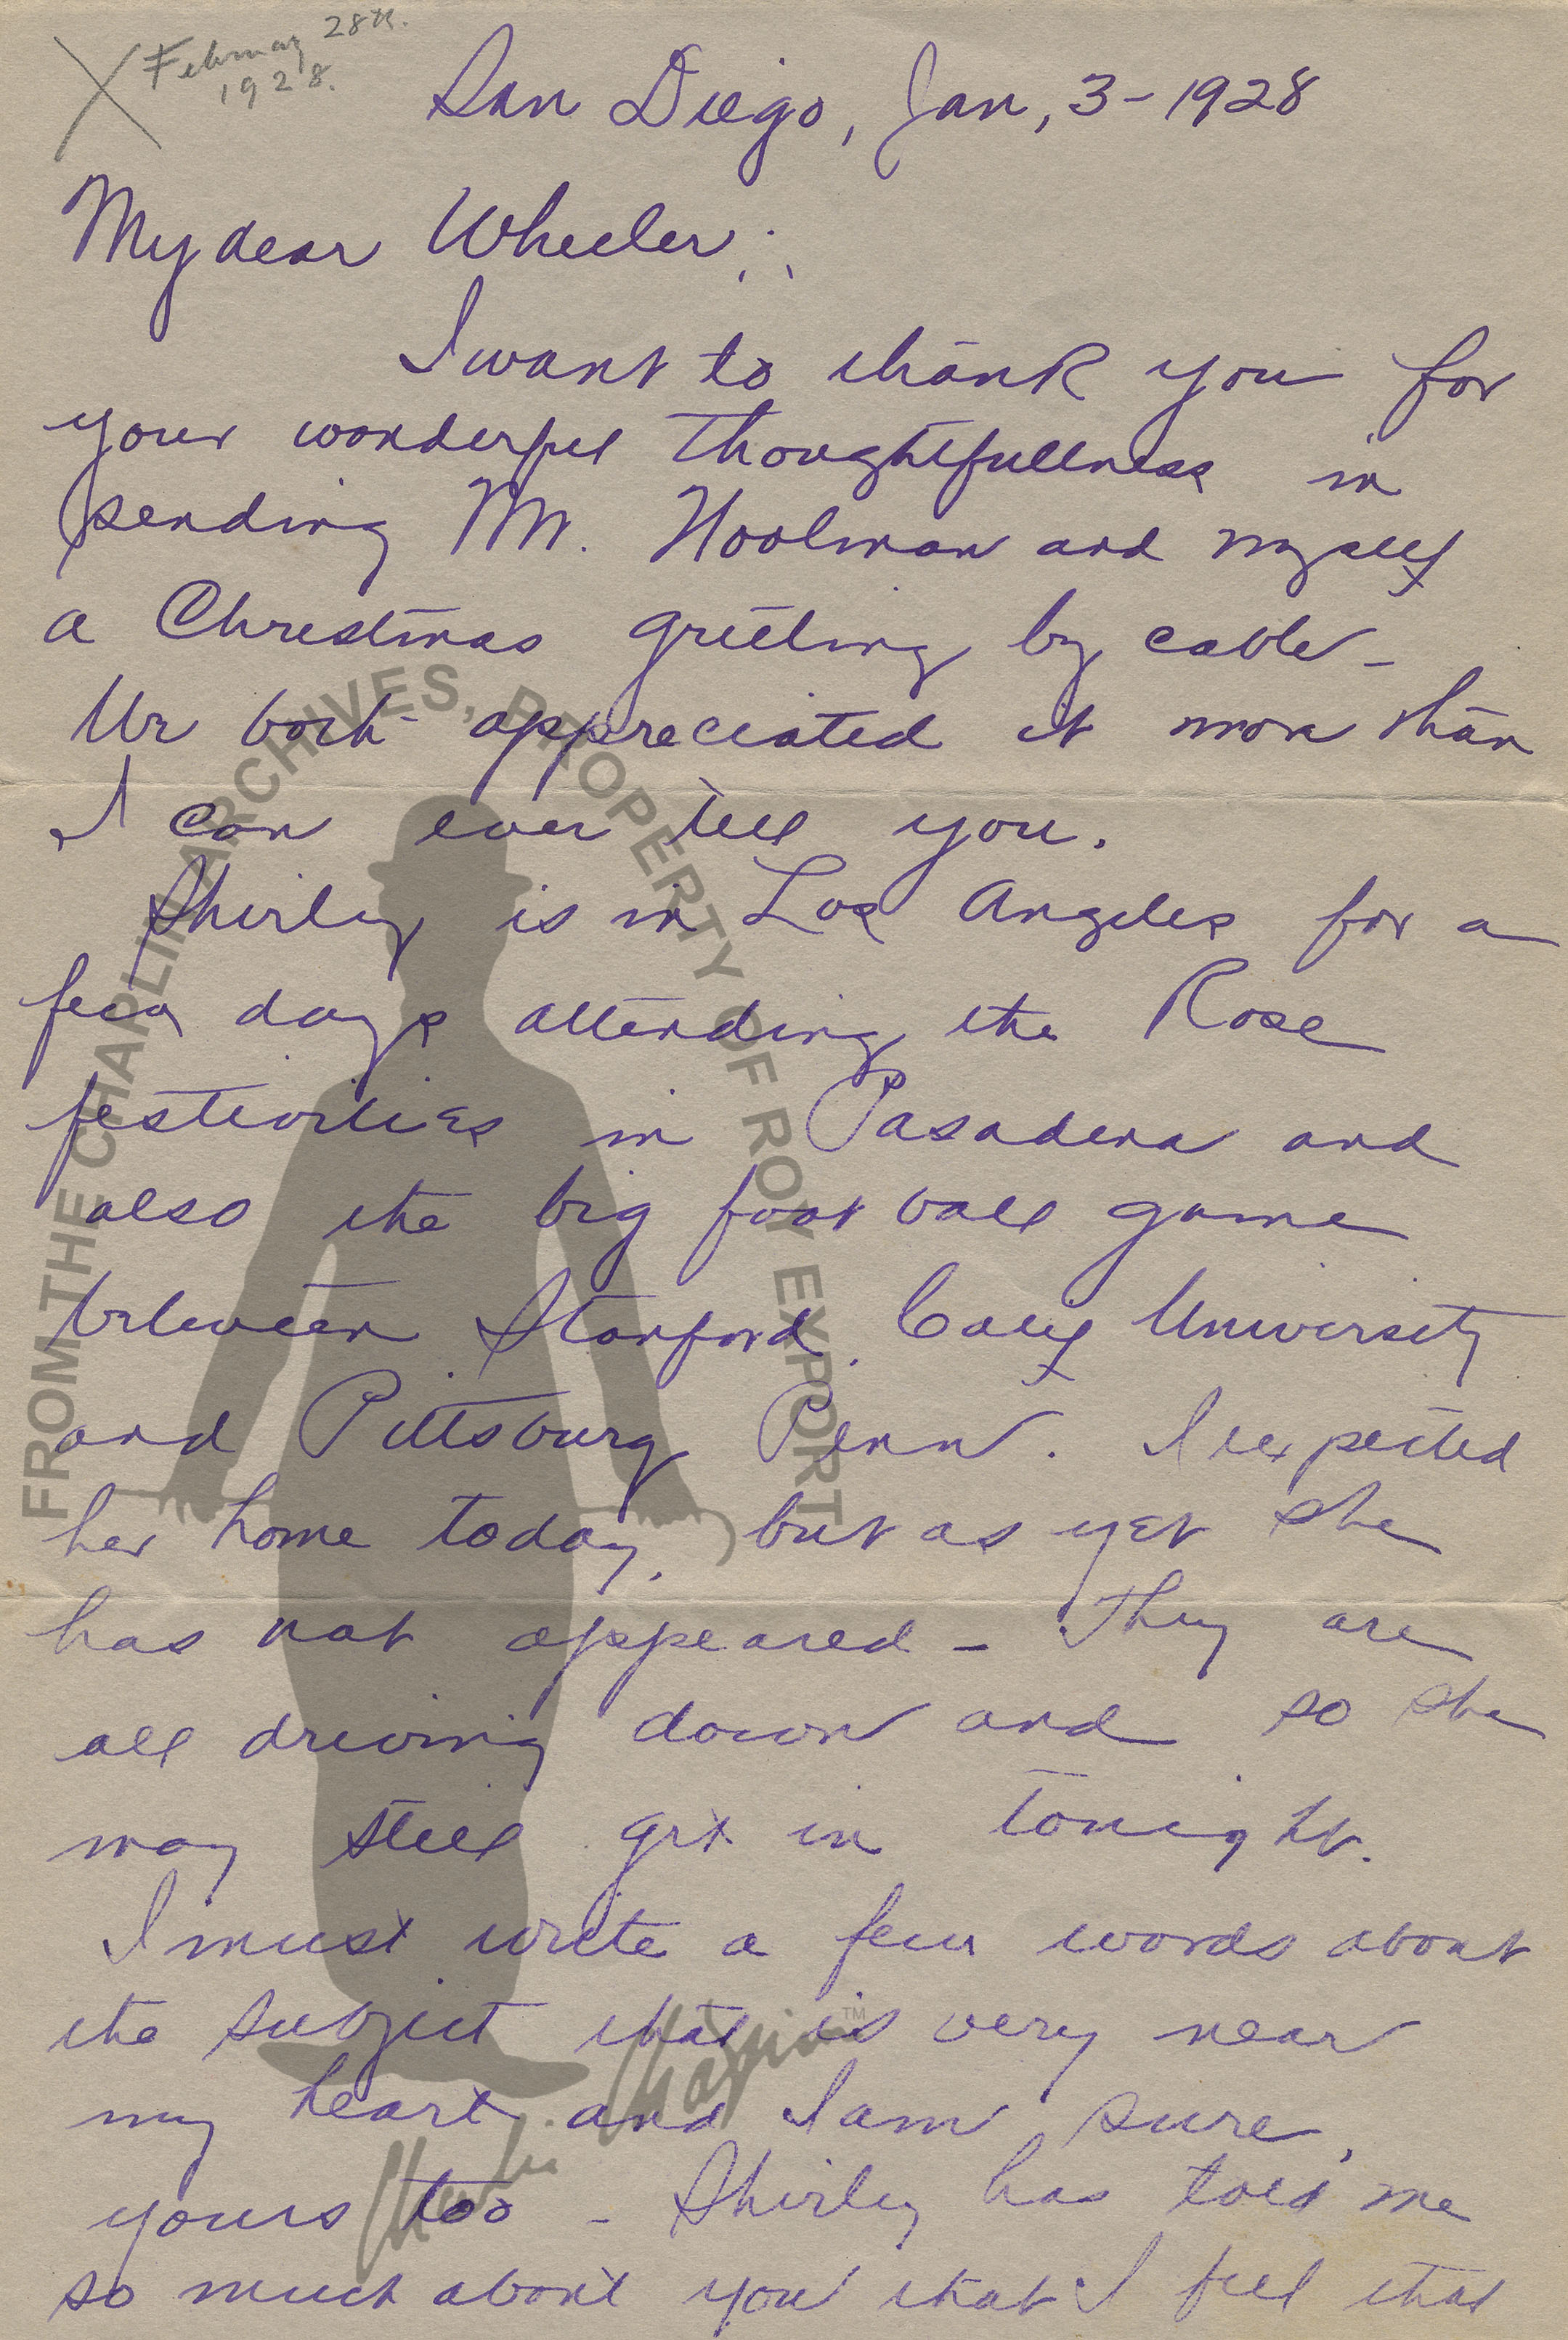 February 28th.
1928.
San Diego, Jan, 3-1928
My dear Wheeler:
I want to thank you for
your wonderful thoughtfullness in
sending Mr. Woolman and myself
a Christmas greeting by cable -
We both appreciated it more than
I can ever tell you.
Shirley is in Los Angeles for a
few days attending the Rose
festivities in Pasadena and
also the big foot ball game
between Stanford, Calif University
and Pittsburg Penn. I expected
her home today, but as yet she
has not appeared - They are
all driving down and so she
may still get in tonight.
I must write a few words about
the subject that is very near
my heart and I am sure,
yours too - Shirley has told me
so much about you that I feel that
FROM THE CHAPLIN ARCHIVES, PROPERTY OF ROY EXPORT
Charlie Chaplin™